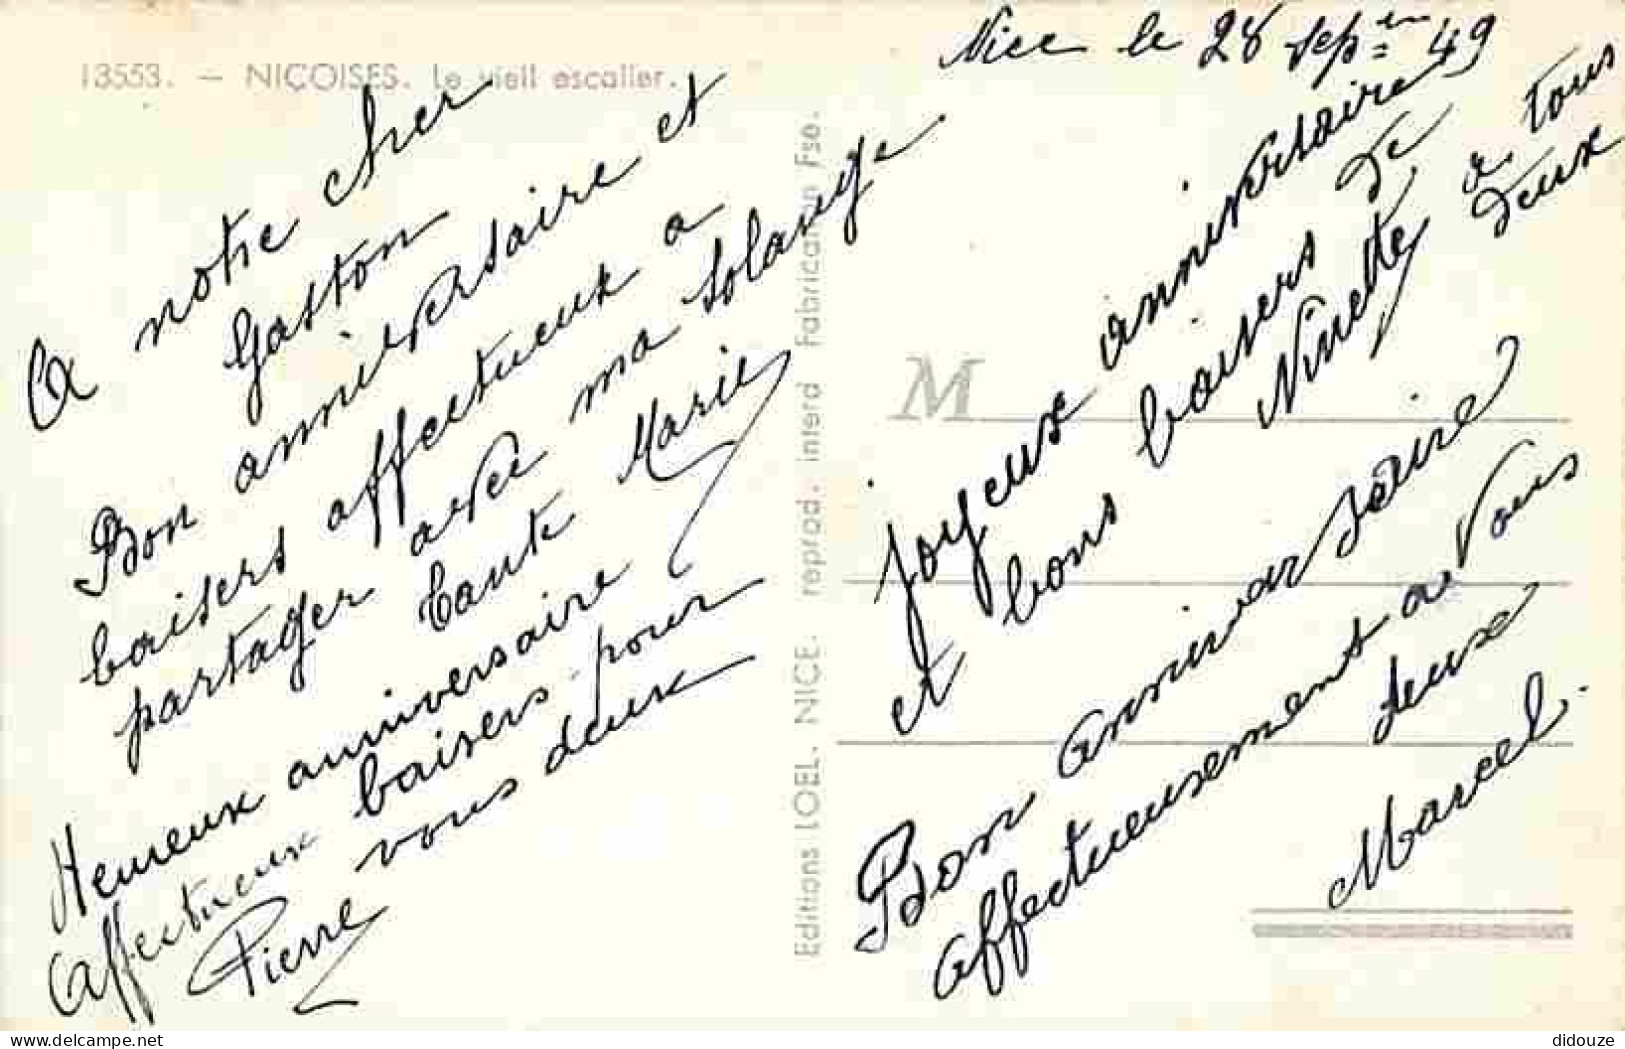 13553. — NIÇOISES. Le vieil escalier.
Nice le 28 sep=re 49
A notre cher
Gaston
Bon anniversaire et
baisers affectueux à
partager avec ma Solange.
Tante Marie
Heureux anniversaire
Affectueux baisers pour
vous deux
Pierre
Editions LOEL. NICE. reprod. interd Fabrication Fse.
M
Joyeux anniversaire
et bons baisers de
Ninette à tous
deux
Bon anniversaire
affectueusement a vous
deux
Marcel.
delcampe.net
didouze